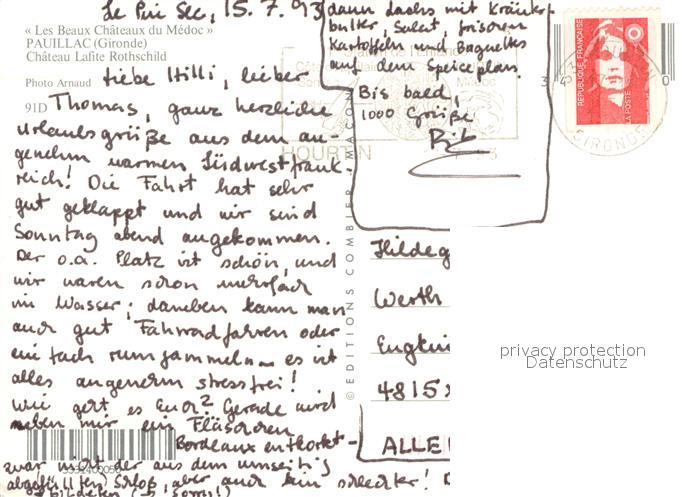 Le Pin Sec, 15.7.93
« Les Beaux Châteaux du Médoc »
PAUILLAC (Gironde)
Château Lafite Rothschild
Photo Arnaud
91D
Liebe Hilli, lieber
Thomas, ganz herzliche
Urlaubsgrüße aus dem an-
genehm warmen Südwestfrank
reich! Die Fahrt hat sehr
gut geklappt und wir sind
Sonntag abend angekommen.
Der o.a. Platz ist schön, und
wir waren schon mehrfach
im Wasser; daneben kann man
auch gut Fahrradfahren oder
einfach rumgammeln – es ist
alles angenehm stressfrei!
Wie geht es Euch? Gerade wird
neben mir ein Fläschchen
Bordeaux entkorkt –
zwar nicht der aus dem umseitig
abgefüllten Schloß, aber auch kein schlechter!
3331400056
dann dachs mit Kräuter
butter, Salat, frischen
Kartoffeln und Baguettes
auf dem Speiseplan.
Bis bald,
1000 Grüße
HOURTIN
33
REPUBLIQUE FRANÇAISE
LA POSTE
GIRONDE
© EDITIONS COMBIER MACON
Hildeg
Werth
4815
ALLE
privacy protection
Datenschutz